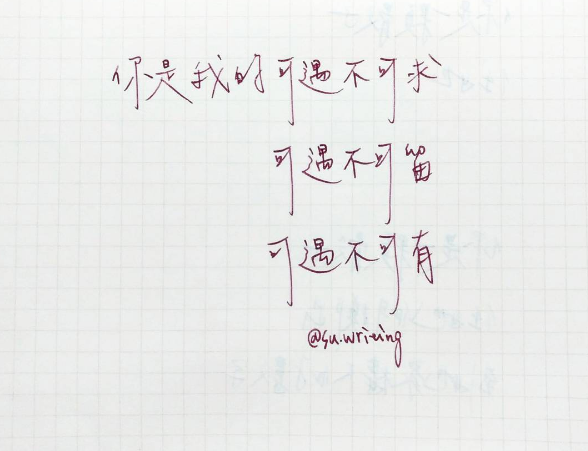 你是我的可遇不可求
可遇不可留
可遇不可有
@su.writing